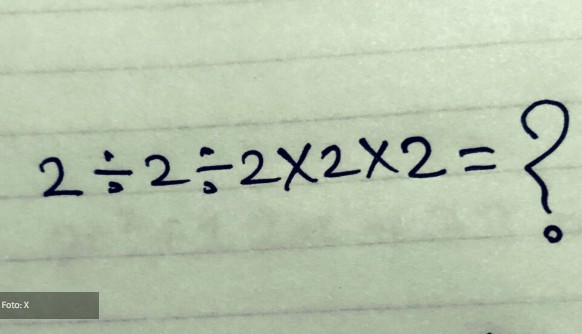 2÷2÷2×2×2=?
Foto: X